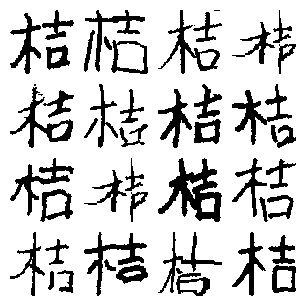 桔桔桔桔
桔桔桔桔
桔桔桔桔
桔桔桔桔